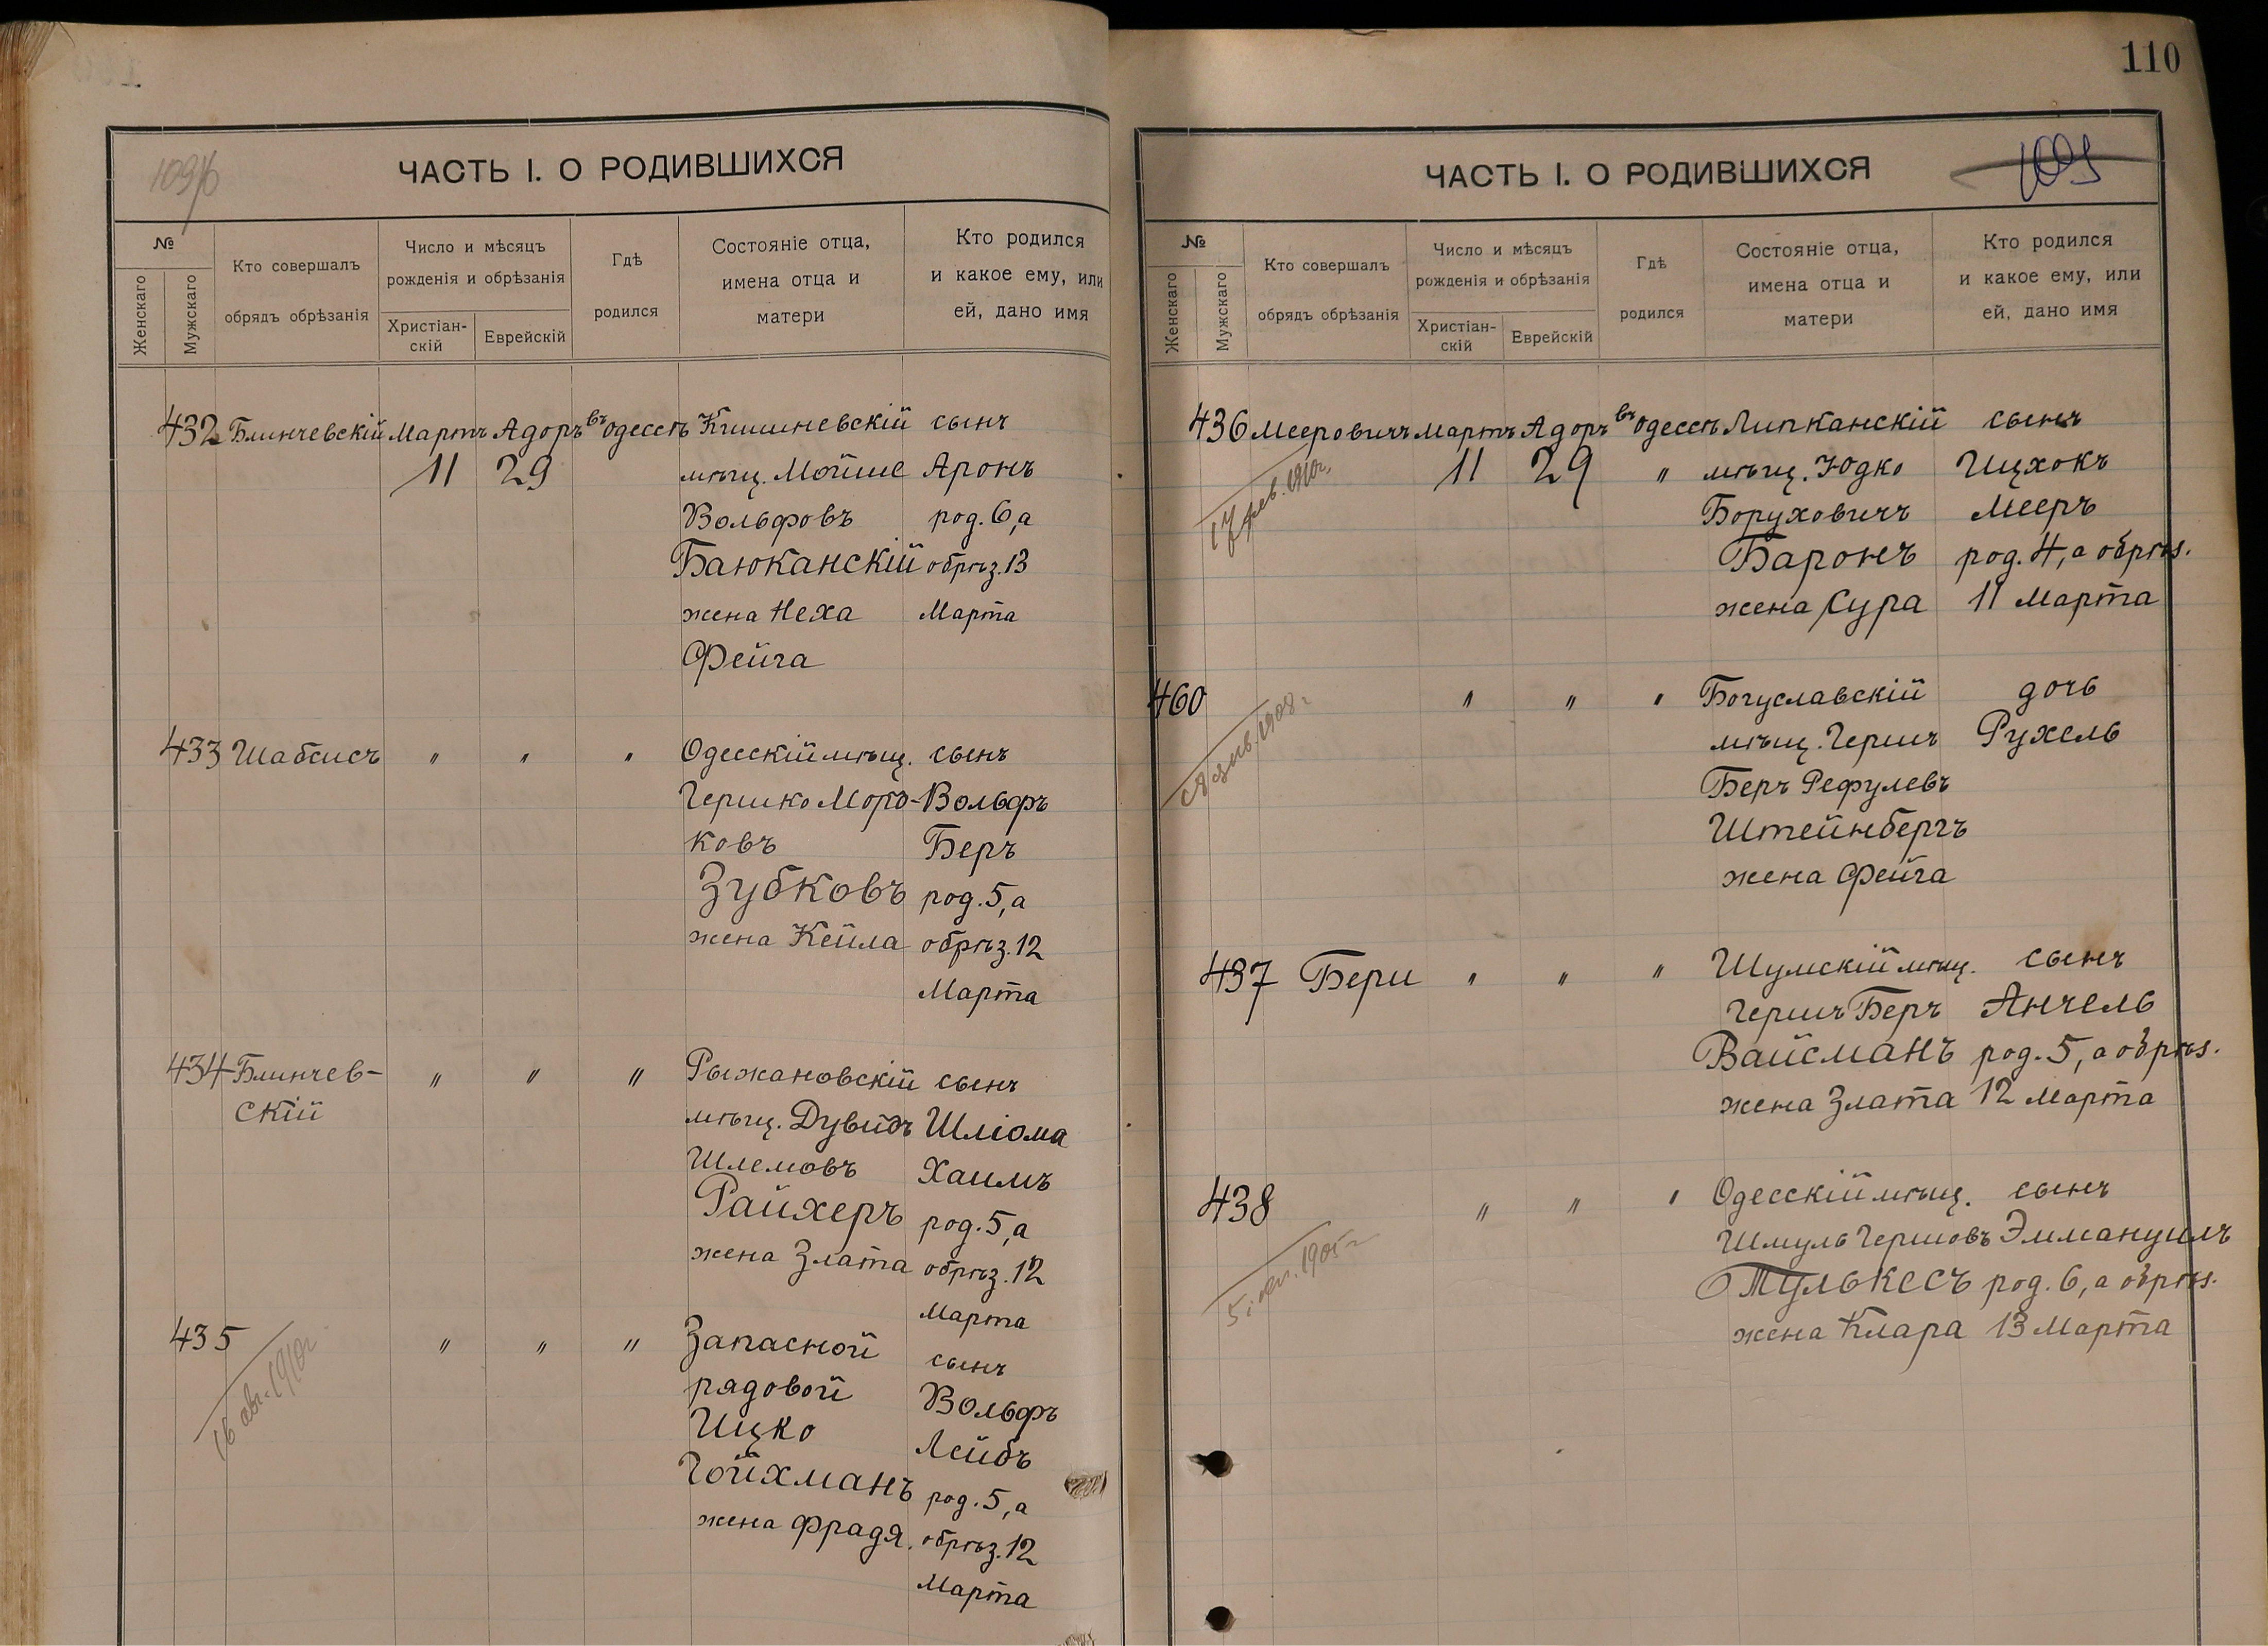 109/б
ЧАСТЬ I. О РОДИВШИХСЯ
№
Женскаго
Мужскаго
Кто совершалъ
обрядъ обрѣзанія
Число и мѣсяцъ
рожденія и обрѣзанія
Христіан-
скій
Еврейскій
Гдѣ
родился
Состояніе отца,
имена отца и
матери
Кто родился
и какое ему, или
ей, дано имя
432 Блинчевскій Мартъ Адоръ въ Одессѣ Кишиневскій сынъ
11 29 мѣщ. Мойше Аронъ
Вольфовъ род. 6, а
Баюканскій обрѣз. 13
жена Неха Марта
Фейга
433 Шабсисъ " " " Одесскій мѣщ. сынъ
Гершко Морд- Вольфъ
ковъ Беръ
Зубковъ род. 5, а
жена Кейла обрѣз. 12
Марта
434 Блинчев- " " " Рыжановскій сынъ
скій мѣщ. Дувидъ Шліома
Шлемовъ Хаимъ
Райхеръ род. 5, а
жена Злата обрѣз. 12
Марта
435 " " " Запасной сынъ
16 авг. 1910 г. рядовой Вольфъ
Ицко Лейбъ
Гойхманъ род. 5, а
жена Фрадя. обрѣз. 12
Марта
110
109
ЧАСТЬ I. О РОДИВШИХСЯ
№
Женскаго
Мужскаго
Кто совершалъ
обрядъ обрѣзанія
Число и мѣсяцъ
рожденія и обрѣзанія
Христіан-
скій
Еврейскій
Гдѣ
родился
Состояніе отца,
имена отца и
матери
Кто родился
и какое ему, или
ей, дано имя
436 Мееровичъ Мартъ Адоръ въ Одессѣ Липканскій сынъ
17 фев. 1910 г. 11 29 " мѣщ. Юдко Ицхокъ
Боруховичъ Мееръ
Баронъ род. 4, а обрѣз.
жена Сура 11 Марта
460 " " " Богуславскій дочь
янв. 1908 г. мѣщ. Гершъ Рухель
Беръ Рефулевъ
Штейнбергъ
жена Фейга
437 Бери " " " Шумскій мѣщ. сынъ
Гершъ Беръ Анчель
Вайсманъ род. 5, а обрѣз.
жена Злата 12 Марта
438 " " " Одесскій мѣщ. сынъ
1905 г. Шмуль Гершовъ Эммануилъ
Тулькесъ род. 6, а обрѣз.
жена Клара 13 Марта